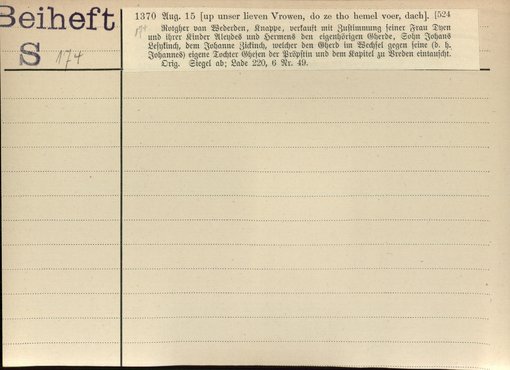 Beiheft
S 174
1370 Aug. 15 [up unser lieven Vrowen, do ze tho hemel voer, dach]. [524
174
Rotgher van Wederden, Knappe, verkauft mit Zustimmung seiner Frau Dyen
und ihrer Kinder Aleydes und Hermens den eigenhörigen Gherde, Sohn Johans
Lesykinch, dem Johanne Zickinch, welcher den Gherd im Wechsel gegen seine (d. h.
Johannes) eigene Tochter Ghesen der Pröpstin und dem Kapitel zu Vreden eintauscht.
Orig. Siegel ab; Lade 220, 6 Nr. 49.